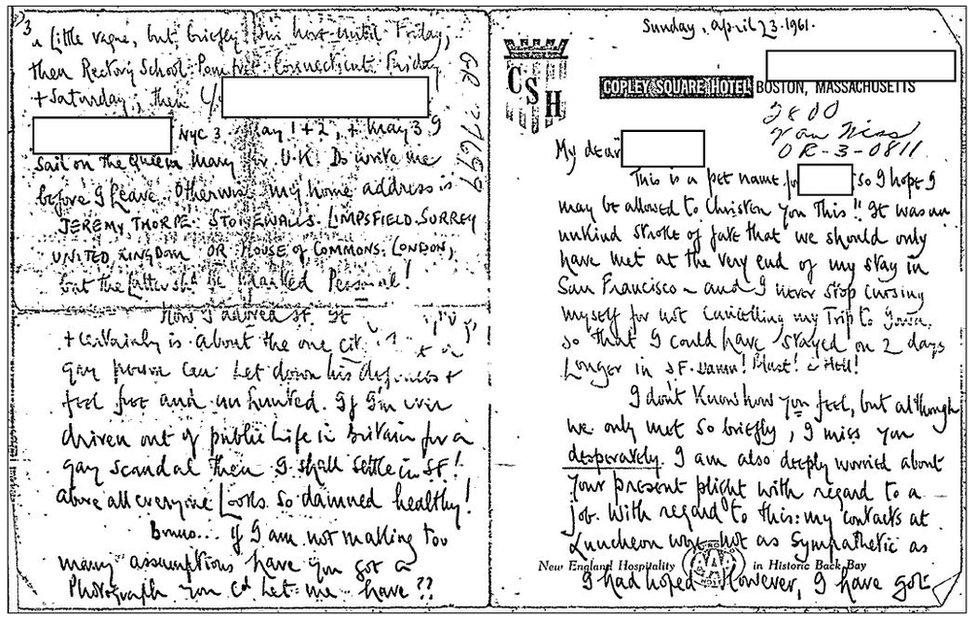 3
a little vague, but briefly I'm here until Friday,
then Rectory School Pomfret Connecticut Friday
+ Saturday, then c/o
NYC 3 May 1 + 2, + May 3 I
sail on the Queen Mary for U.K. Do write me
before I leave. Otherwise my home address is
JEREMY THORPE. STONEWALLS. LIMPSFIELD. SURREY
UNITED KINGDOM OR HOUSE OF COMMONS. LONDON,
but the latter shd be marked Personal!
How I adored SF. It
+ certainly is about the one city
gay person can let down his defenses +
feel free and unhunted. If I'm ever
driven out of public life in Britain for a
gay scandal then I shall settle in SF!
Above all everyone looks so damned healthy!
if I am not making too
many assumptions have you got a
Photograph you cd let me have??
GR 77699
Sunday, April 23. 1961.
CSH
COPLEY SQUARE HOTEL BOSTON, MASSACHUSETTS
2800
Van Ness
OR-3-0811
My dear
This is a pet name for so I hope I
may be allowed to christen you this!! It was an
unkind stroke of fate that we should only
have met at the very end of my stay in
San Francisco - and I never stop cursing
myself for not cancelling my trip to
so that I could have stayed on 2 days
longer in SF. Damn! Blast! & Hell!
I don't know how you feel, but although
we only met so briefly, I miss you
desperately. I am also deeply worried about
your present plight with regard to a
job. With regard to this: my contacts at
Luncheon were not as sympathetic as
New England Hospitality in Historic Back Bay
I had hoped. However, I have got